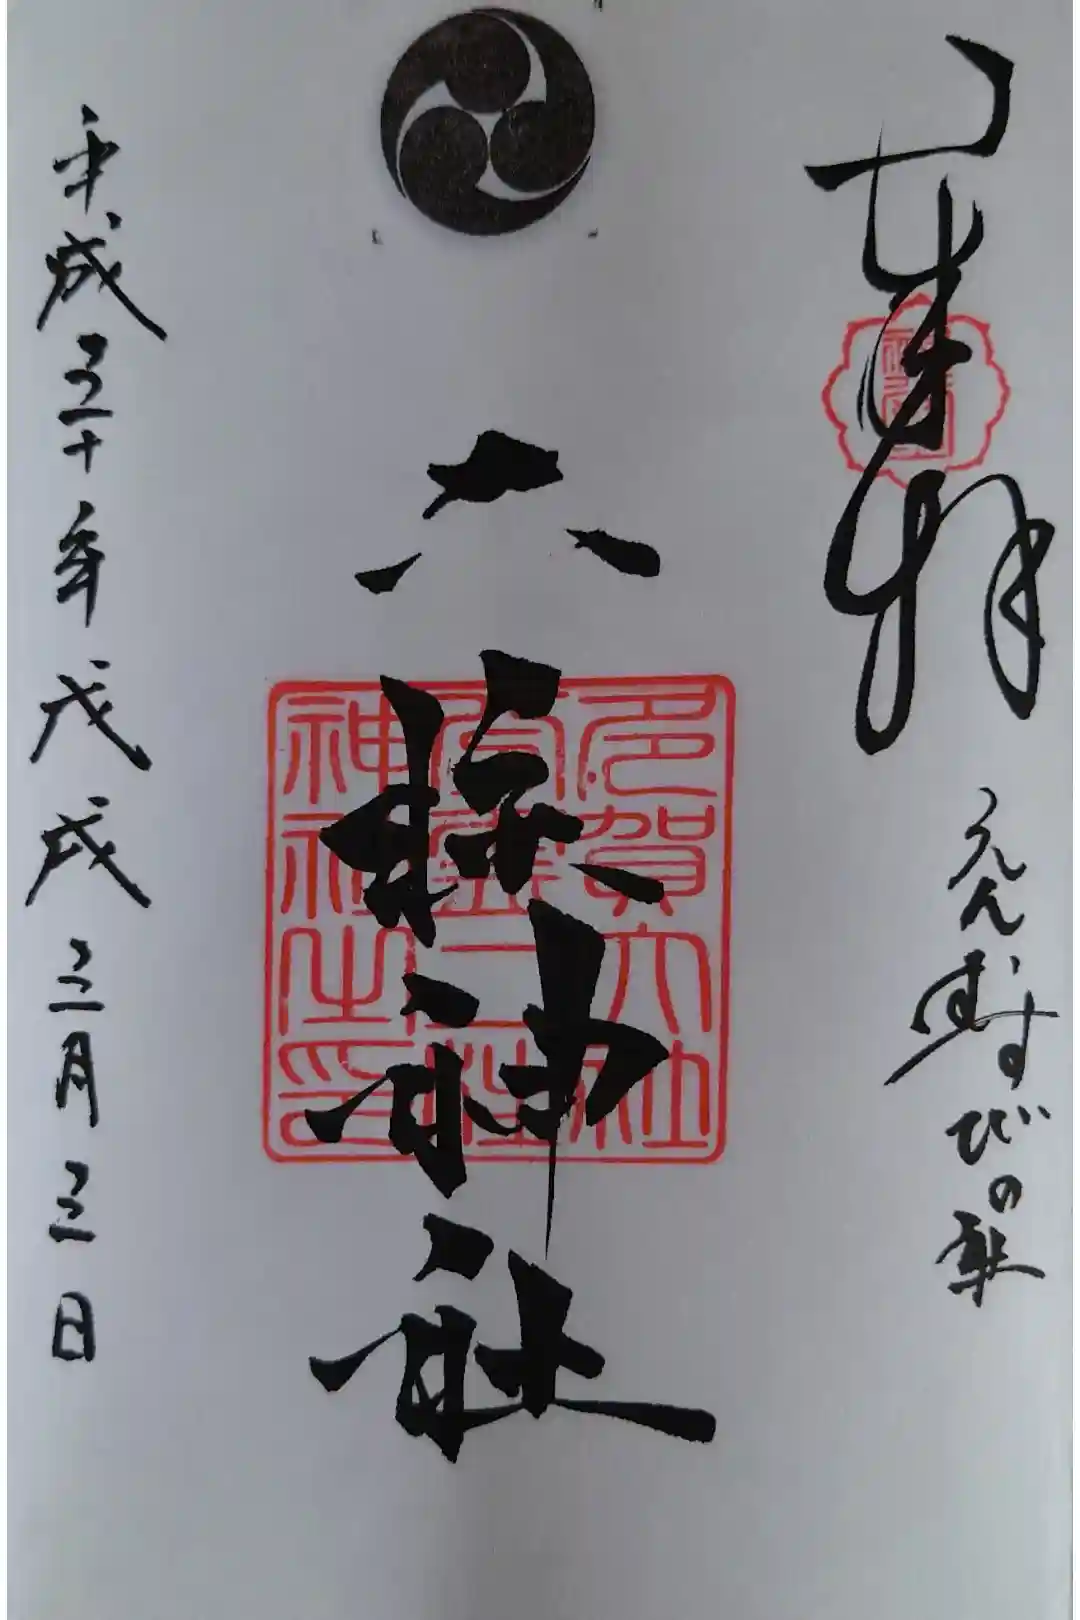 奉拝
えんむすびの
六 神社
多賀六社
二柱
神社之印
平成三十年戊戌三月三日